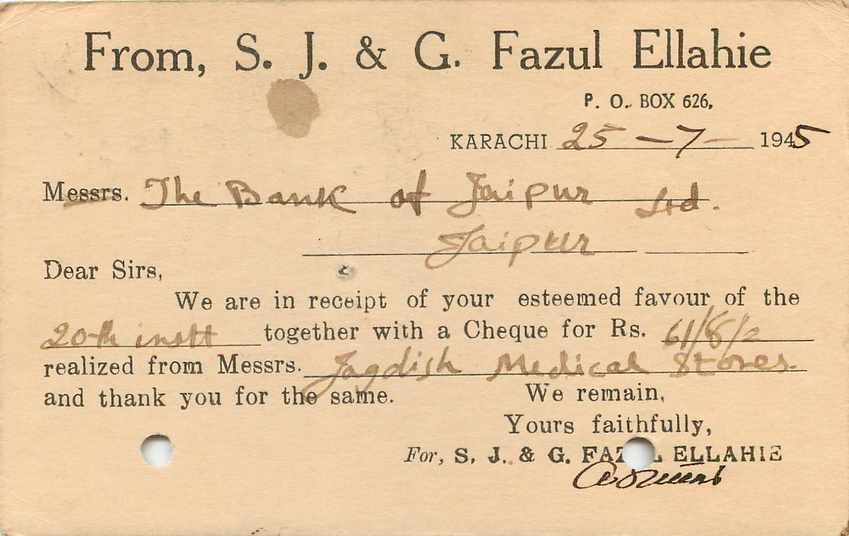 From, S. J. & G. Fazul Ellahie
P. O. BOX 626,
KARACHI 25-7- 1945
Messrs. The Bank of Jaipur Ltd.
Jaipur
Dear Sirs,
We are in receipt of your esteemed favour of the
20th instt together with a Cheque for Rs. 61/8/2
realized from Messrs. Jagdish Medical Stores.
and thank you for the same. We remain,
Yours faithfully,
For, S. J. & G. FAZUL ELLAHIE